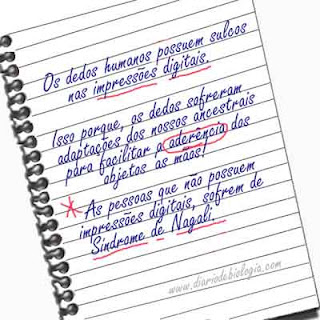 Os dedos humanos possuem sulcos
nas impressões digitais.
Isso porque, os dedos sofreram
adaptações dos nossos ancestrais
para facilitar a aderência dos
objetos as mãos!
* As pessoas que não possuem
impressões digitais, sofrem de
Síndrome de Nagali.
www.diariodebiologia.com